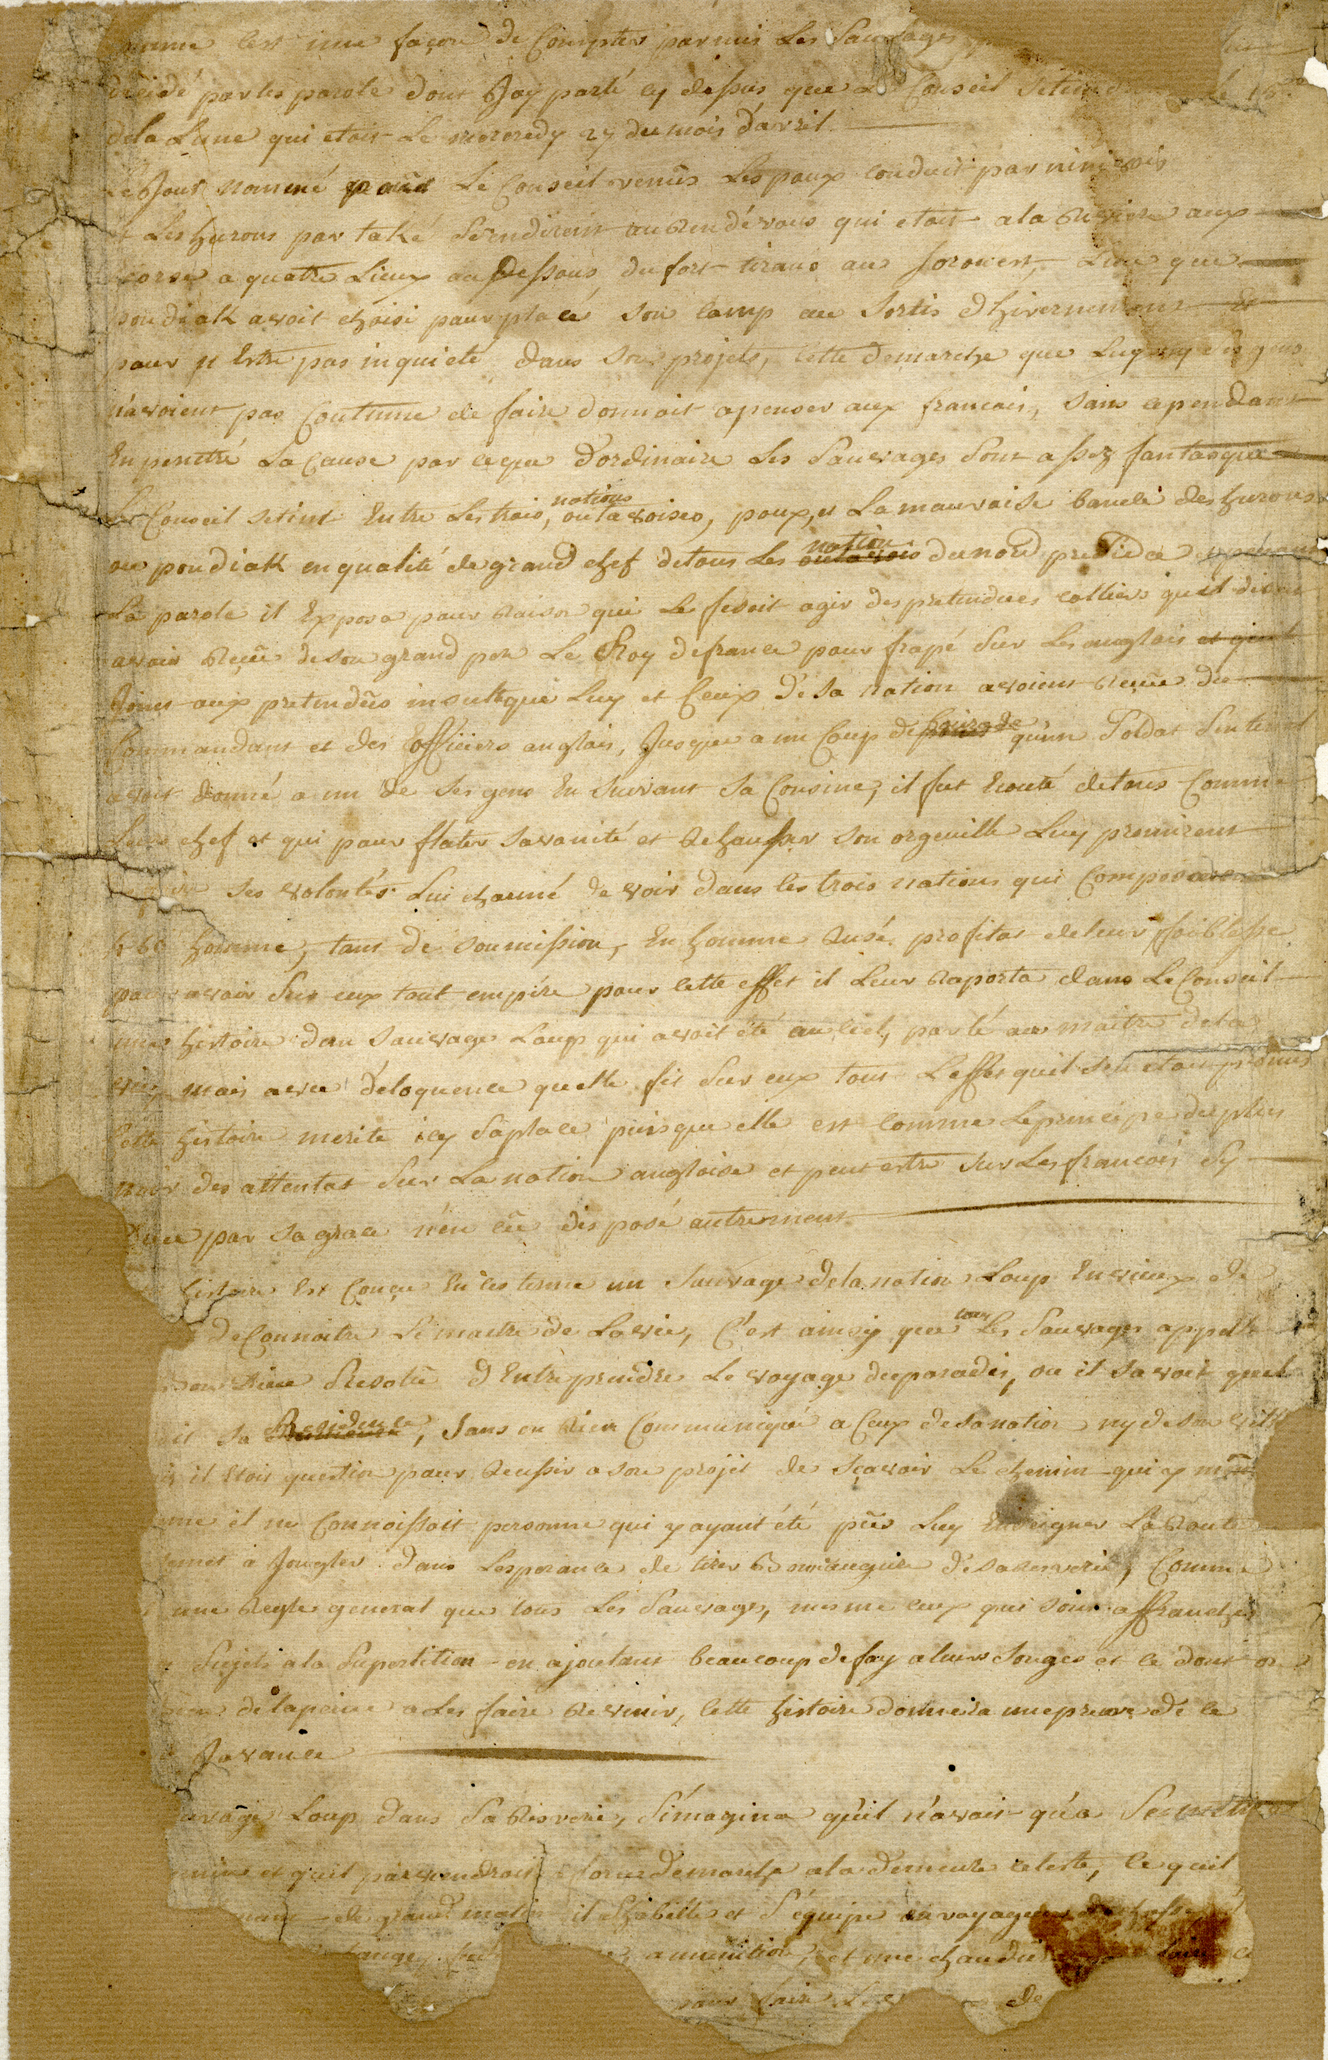 comme cest une façon de Compter parmis Les Sauvages
décidé par les parole dont Jay parlé cy dessus que Le Conseil se tien le 15e
dela Lune qui etoit Le mecredy 27 du mois d'avril
Le Jour nommé pour Le Conseil venüs Les poux conduit par ninivois
et Les hurons par také se rendirent au Rendévous qui etoit a la Riviere aux
Ecorse a quatre Lieux au Dessous du fort tirans au Sorouest, Lieu que
pondiak avoit choisi pour placé son Camp au Sortis d'hivernement Et
pour ny Estre pas inquieté dans ses projets, Cette demarche que Luy ny ses gens
n'avoient pas Coutume de faire donnoit a penser aux francois, sans cependant
En penetré La Cause par ce que d'ordinaire Les Sauvages Sont assez fantasque
Le Conseil se tint Entre Les trois nations, outavoises, poux, et La mauvaise bande des hurons
ou pondiak en qualité de grand chef de tous Les outavois nation du nord presida
La parole il Exposa pour Raison qui Le fesoit agir des pretendues colliers quil disoit
avoir Reçüe de son grand pere Le Roy de france pour frapé sur Les anglois
Joint aux pretendües insulte que Luy et Ceux de sa nation avoient Reçue du
Commandant et des officiers anglois, Jusque a un Coup de qu'un Soldat Sentinel
avoit donné a un de ses gens En suivant sa Cousine; il fut Ecouté de tous Comme
Leur chef et qui pour flater sa vanité et Rehausser son orgeuille Luy promirent
ses volontés. Lui charmé de voir dans les trois nations qui Composoient
460 homme, tant de soumission, En homme Rusé profitat de leur foiblesse
pour avoir Sur eux tout empire pour cette effet il Leur Raporta dans Le Conseil
une histoire d'un Sauvage Loup qui avoit été au ciel, parlé au maitre de la
vie, mais avec d'eloquence quelle fit Sur eux tout Leffet quil s'en etoit promis
Cette histoire merite icy sa place puis que elle est comme Le principe du plus
noir des attentat Sur La nation angloise et peut estre sur Les francois Sy
Dieu par sa grace n'en eüt disposé autrement
histoire Est Conçu En ces terme un Sauvage de la nation Loup Envieux de
de Connoitre Le maitre de La vie, C'est ainsy que tous Les Sauvages appelle
Dieu Resolu d'Entreprendre Le voyage du paradis, ou il savoit quel
sa Residence, sans en Rien Communiqué a Ceux de sa nation ny de son
il Etoit question pour Reussir a son projet de sçavoir Le chemin qui y
il ne Connoissoit personne qui y ayant été pût Luy Enseigner La Route
a Jongler dans Lesperance de tirer bonne augure de sa resverie, Comme
une Regle general que tous Les Sauvages, mesme ceux qui sont affranchis
Sujets a la Superstition en ajoutant beaucoup de foy a leurs songes et ce dont on
de la peine a Les faire Revenir, Cette histoire donnera une preuve de ce
Javance
Loup dans Sa Resverie, S'imagina qu'il n'avoit qu'a Se mettre
et quil parviendroit a force de marche a la demeure celeste, Ce quil
de grand matin il shabille et S'equipe en voyageur
amunition, et une chaudiere
pour faire